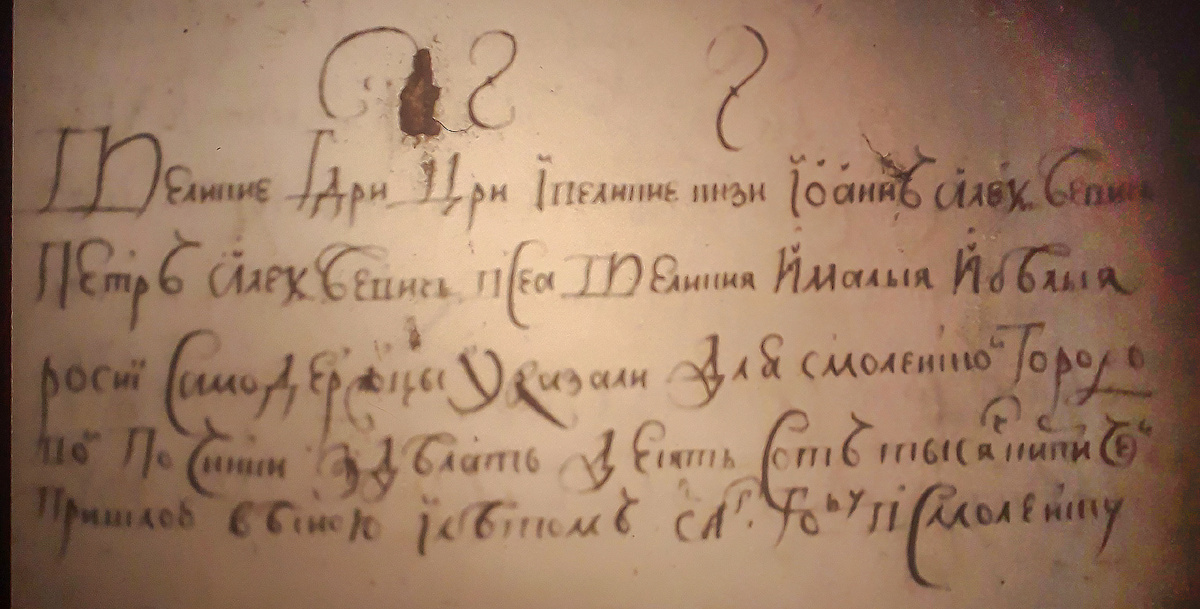 Великие Гдри Цри и великие кнзи Иоаннъ Алексѣевичь
Петръ Алексѣевичь всеа Великия и Малыя и Бѣлыя
росиї Самодержцы Указали Для смоленского Городо
Починки здѣлать Девять сотъ тысячь кирпичю
весною и лѣтомъ Смоленску